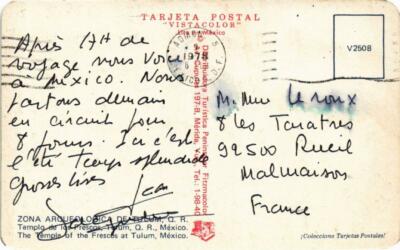 TARJETA POSTAL
"VISTACOLOR"
Hecho en México
V2508
ADMON
1978
MEXICO D.F.
Après 17H de
voyage nous voici
à Mexico. Nous
partons demain
en circuit pour
8 jours. Ici c'est
l'été temps splendide
Grosses bises
M. Mme Le roux
8 les Tanatres
92500 Rueil
Malmaison
France
Distribuidora Turística Peninsular Fitzmacor
197-B, Mérida, Tel.: 1-98-40
ZONA ARQUEOLOGICA DE TULUM, Q. R.
Templo de los Frescos, Tulum, Q. R., México.
The Temple of the Frescos at Tulum, México.
¡Coleccione Tarjetas Postales!